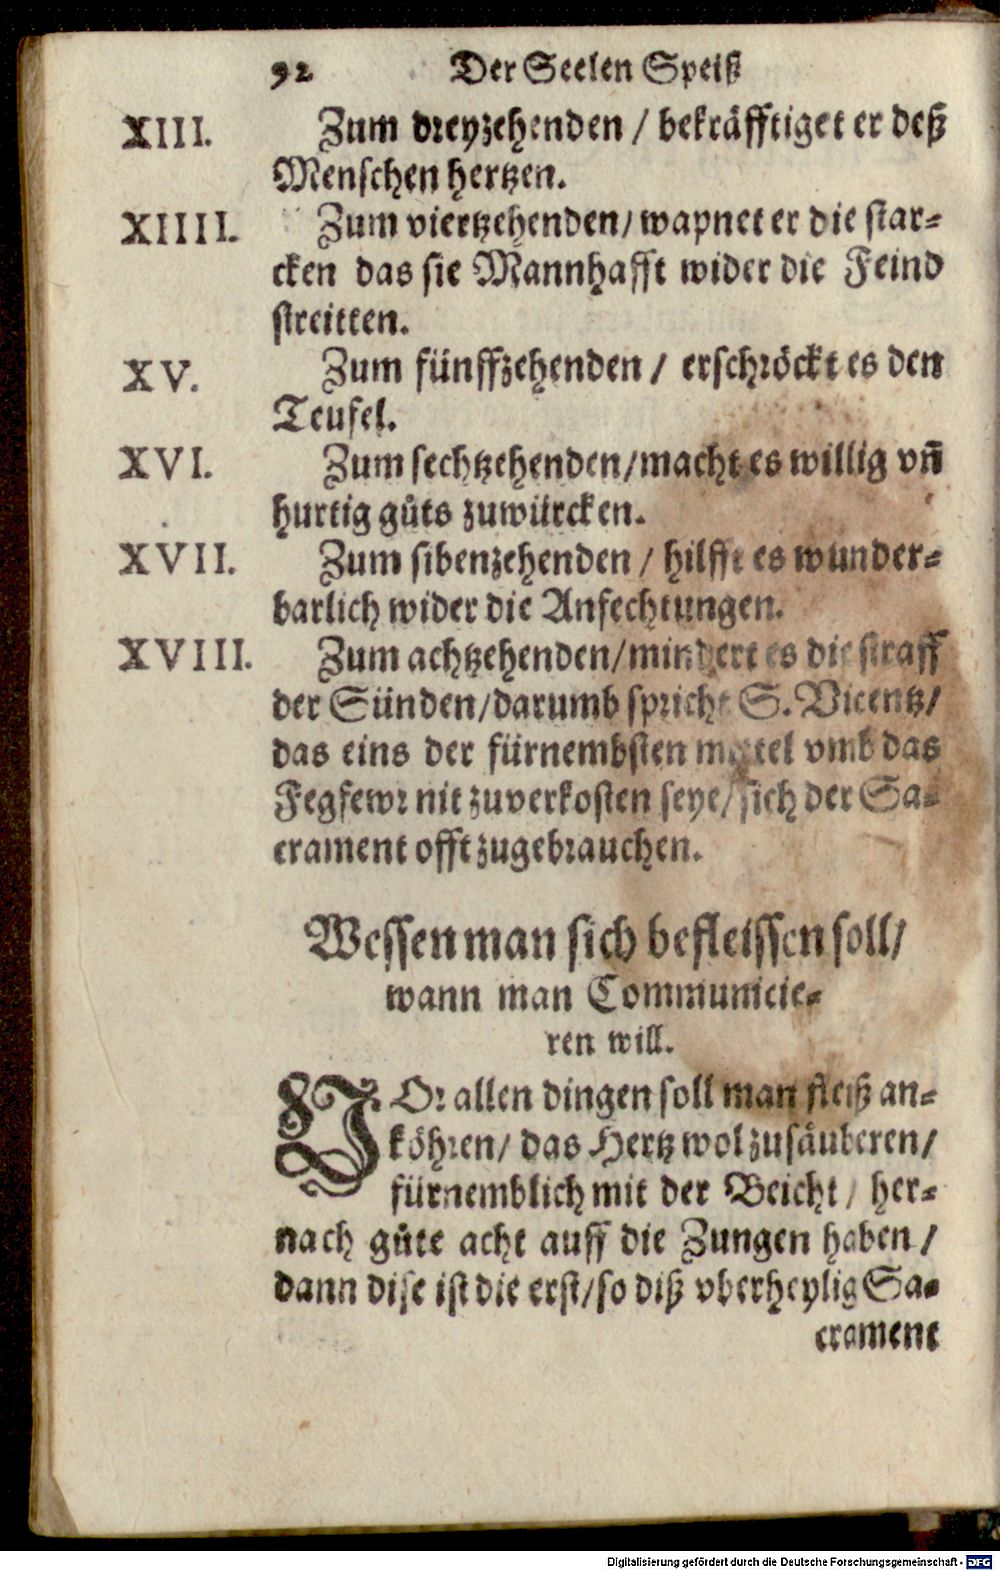 92 Der Seelen Speiß
XIII. Zum dreyzehenden / bekräfftiget er deß
Menschen hertzen.
XIIII. Zum viertzehenden/ wapnet er die star-
cken das sie Mannhafft wider die Feind
streitten.
XV. Zum fünffzehenden / erschröckt es den
Teufel.
XVI. Zum sechtzehenden/macht es willig vñ
hurtig gůts zuwürcken.
XVII. Zum sibenzehenden / hilfft es wunder-
barlich wider die Anfechtungen.
XVIII. Zum achtzehenden/mindert es die straff
der Sünden/darumb spricht S. Vicentz/
das eins der fürnembsten mittel vmb das
Fegfewr nit zuverkosten seye/ sich der Sa-
crament offt zugebrauchen.
Wessen man sich befleissen soll/
wann man Communicie-
ren will.
VOr allen dingen soll man fleiß an-
köhren/ das Hertz wol zusäuberen/
fürnemblich mit der Beicht / her-
nach gůte acht auff die Zungen haben /
dann dise ist die erst/so diß vberheylig Sa-
crament
Digitalisierung gefördert durch die Deutsche Forschungsgemeinschaft - DFG